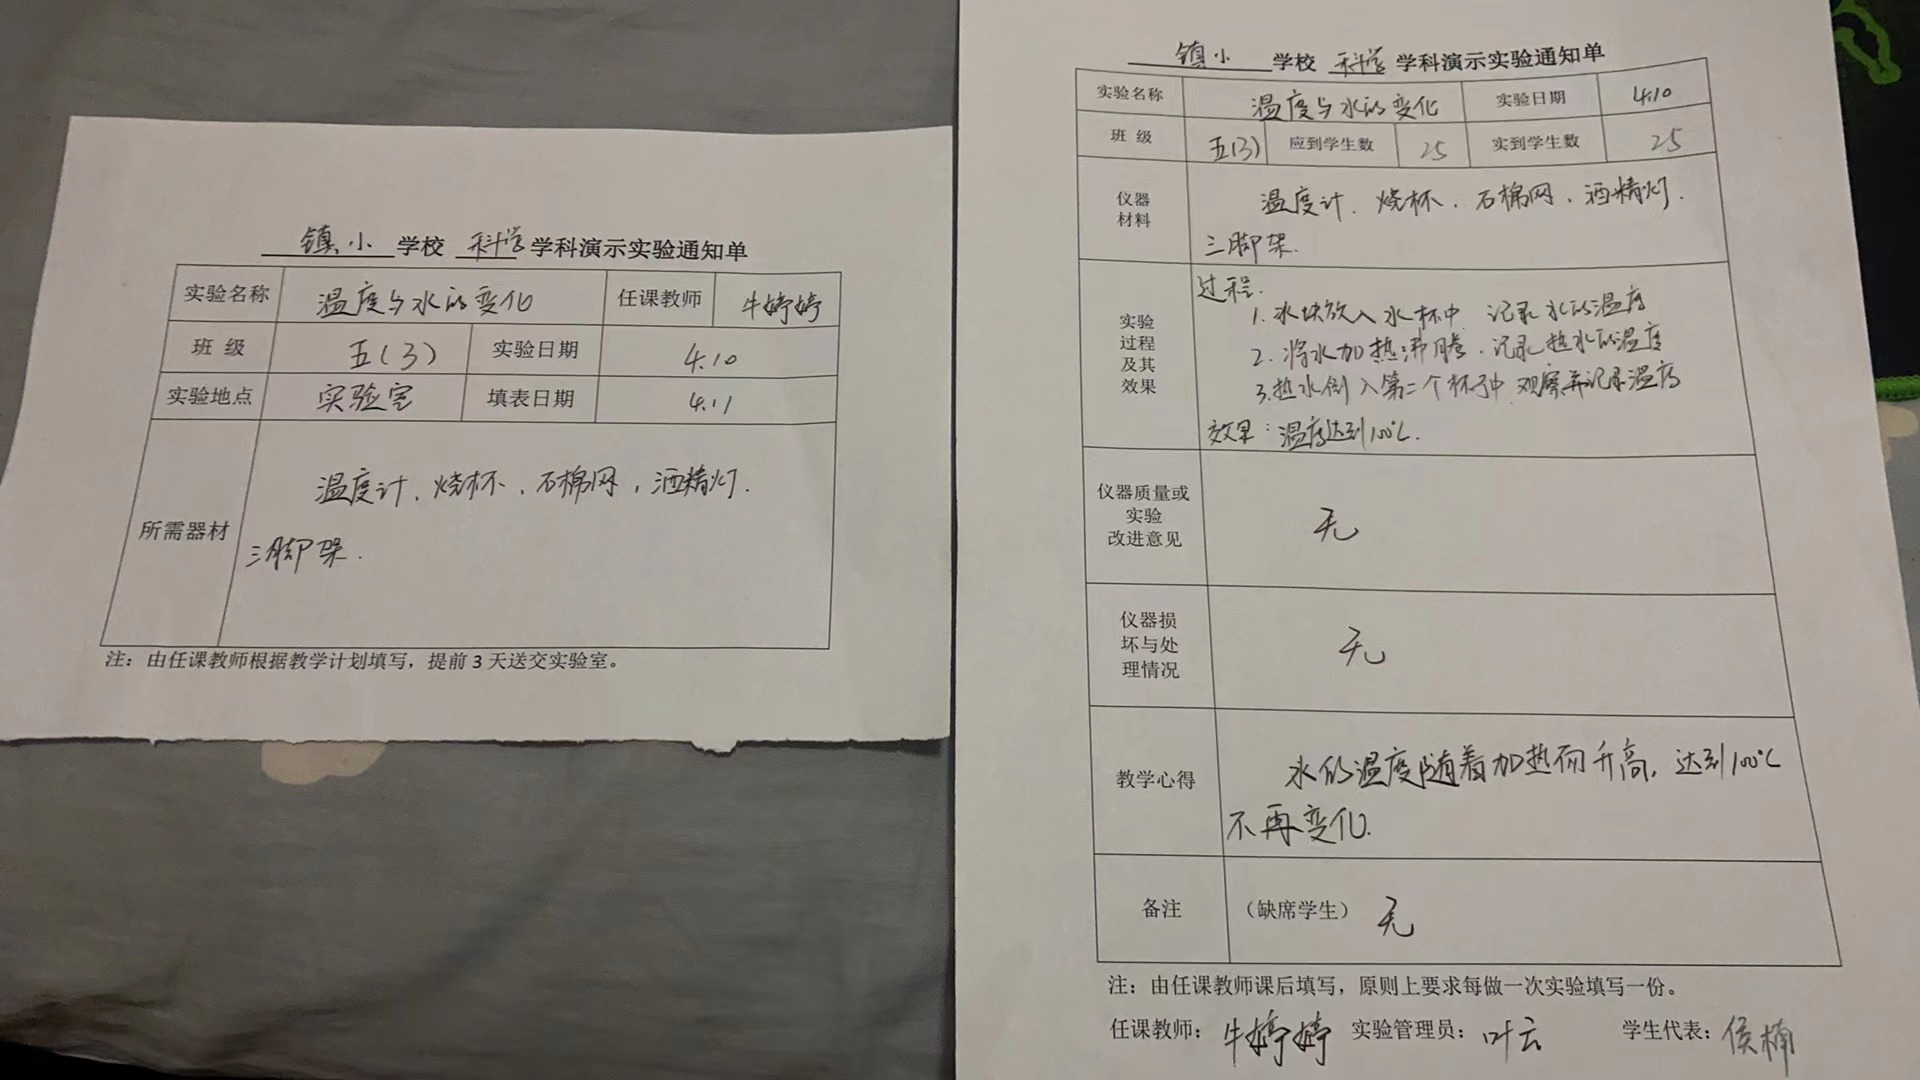 镇小 学校 科学 学科演示实验通知单
实验名称 温度与水的变化 任课教师 牛婷婷
班 级 五(3) 实验日期 4.10
实验地点 实验室 填表日期 4.11
所需器材
温度计、烧杯、石棉网,酒精灯、
三脚架.
注:由任课教师根据教学计划填写,提前 3 天送交实验室。
镇小 学校 科学 学科演示实验通知单
实验名称 温度与水的变化 实验日期 4.10
班 级 五(3) 应到学生数 25 实到学生数 25
仪器
材料
温度计、烧杯、石棉网、酒精灯.
三脚架.
实验
过程
及其
效果
过程:
1. 冰块放入水杯中 记录水的温度
2. 将水加热沸腾、记录热水的温度
3. 热水倒入第二个杯子中,观察并记录温度
效果:温度达到100℃.
仪器质量或
实验
改进意见
无
仪器损
坏与处
理情况
无
教学心得
水的温度随着加热而升高,达到100℃
不再变化.
备注 (缺席学生) 无
注:由任课教师课后填写,原则上要求每做一次实验填写一份。
任课教师:牛婷婷 实验管理员:叶云 学生代表:侯楠